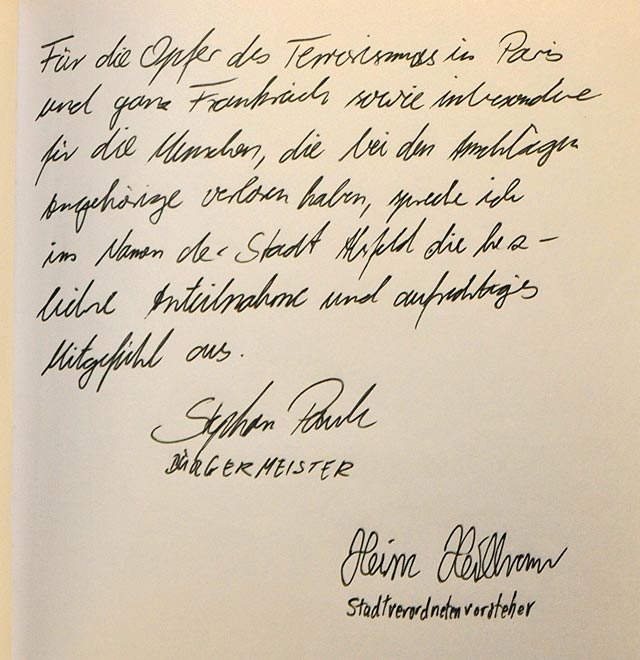 Für die Opfer des Terrorismus in Paris
und ganz Frankreich sowie insbesondere
für die Menschen, die bei den Anschlägen
Angehörige verloren haben, spreche ich
im Namen der Stadt Alsfeld die herz-
liche Anteilnahme und aufrichtiges
Mitgefühl aus.
Stephan Paule
BÜRGERMEISTER
Stadtverordnetenvorsteher